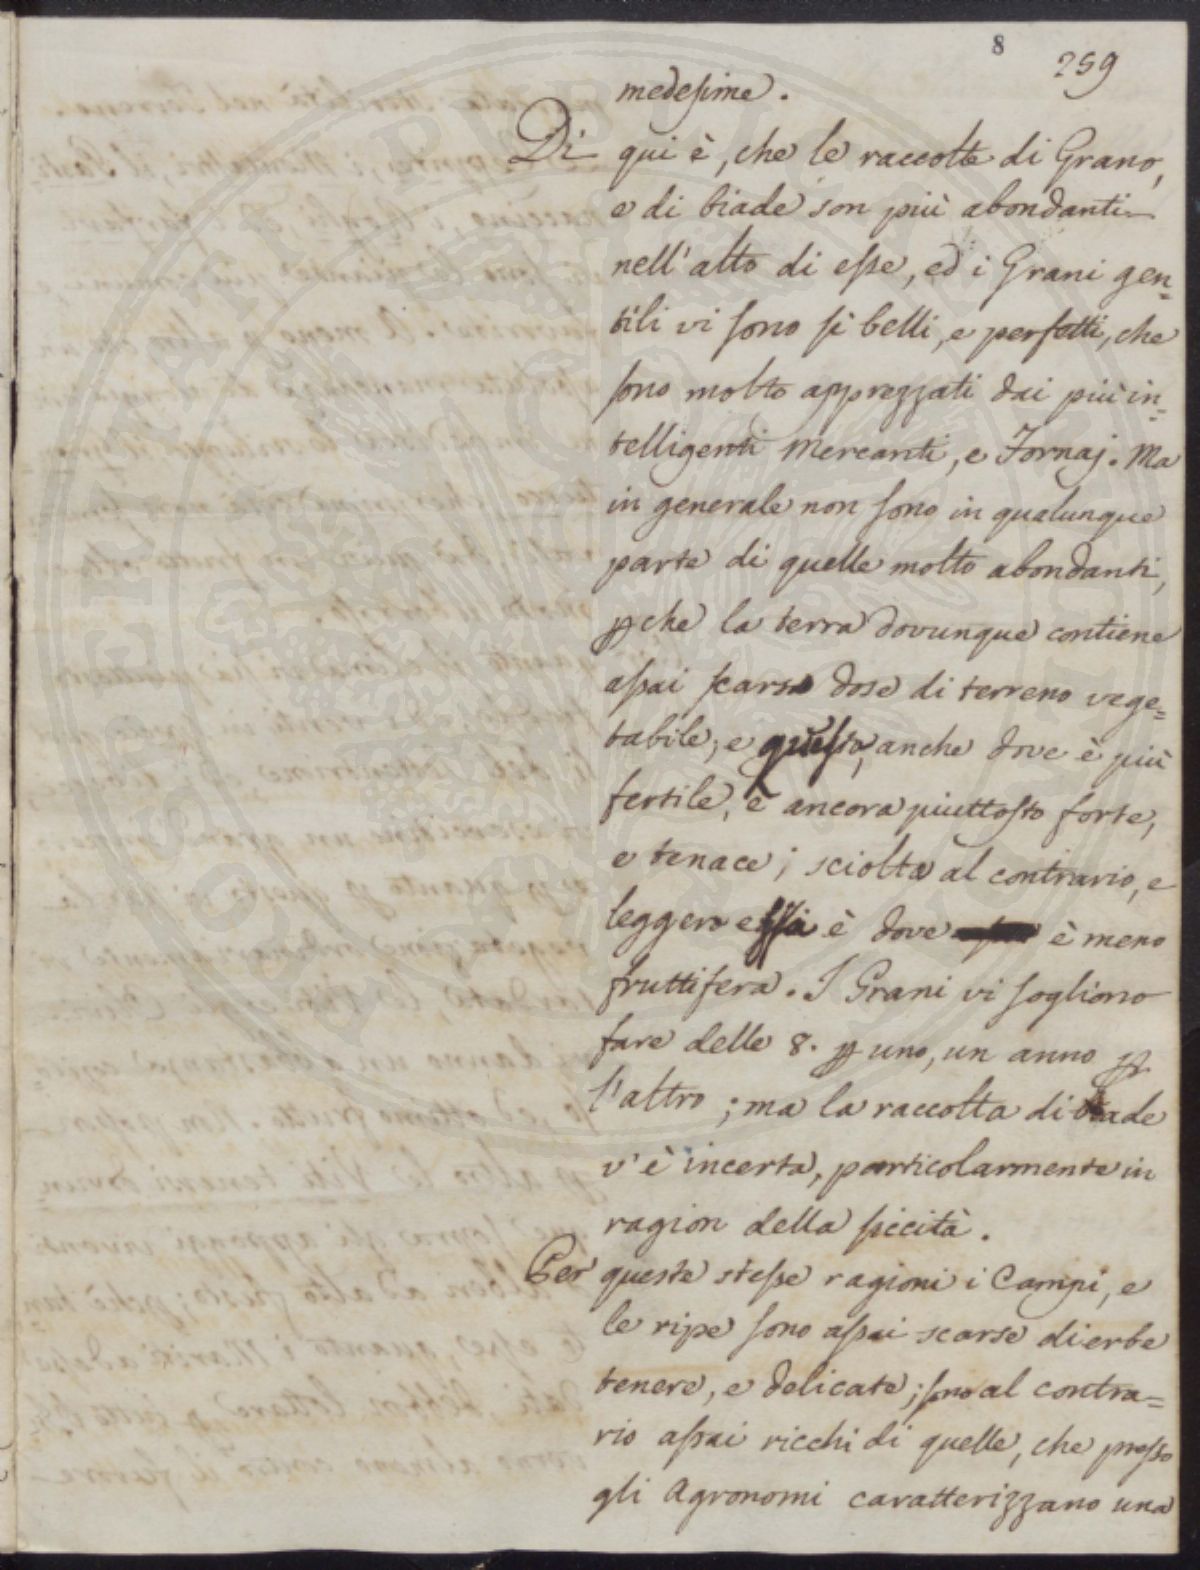 8
259
medesime.
Di qui è, che le raccolte di Grano,
e di biade son più abondanti
nell'alto di esse, ed i Grani gen=
tili vi sono sì belli, e perfetti, che
sono molto apprezzati dai più in=
telligenti Mercanti, e Fornaj. Ma
in generale non sono in qualunque
parte di quelle molto abondanti,
pche la terra dovunque contiene
assai scarsa dose di terreno vege=
tabile; e questo, anche dove è più
fertile, è ancora piuttosto forte,
e tenace; sciolta al contrario, e
leggera essa è dove è meno
fruttifera. I Grani vi sogliono
fare delle 8. p uno, un anno p
l'altro; ma la raccolta di biade
v'è incerta, particolarmente in
ragion della siccità.
Per queste stesse ragioni i Campi, e
le ripe sono assai scarse di erbe
tenere, e delicate; sono al contra=
rio assai ricchi di quelle, che presso
gli Agronomi caratterizzano una